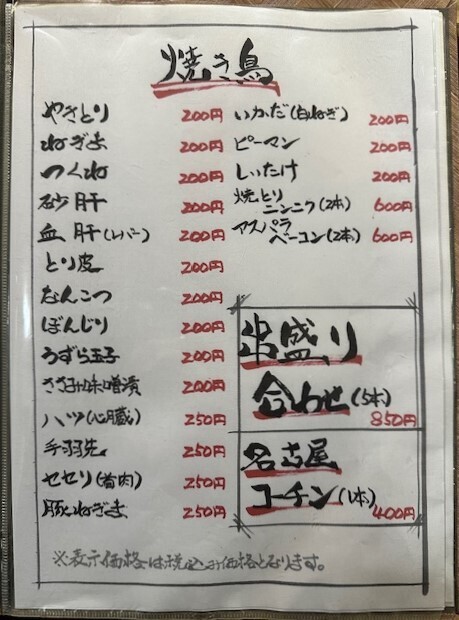 焼き鳥
やきとり 200円
ねぎま 200円
つくね 200円
砂肝 200円
血肝(レバー) 200円
とり皮 200円
なんこつ 200円
ぼんじり 200円
うずら玉子 200円
ささみ味噌漬 200円
ハツ(心臓) 250円
手羽先 250円
セセリ(首肉) 250円
豚ねぎま 250円
いかだ(白ねぎ) 200円
ピーマン 200円
しいたけ 200円
焼とり
ニンニク(2本) 600円
アスパラ
ベーコン(2本) 600円
串盛り
合わせ(5本)
850円
名古屋
コーチン(1本)
400円
※表示価格は税込み価格となります。